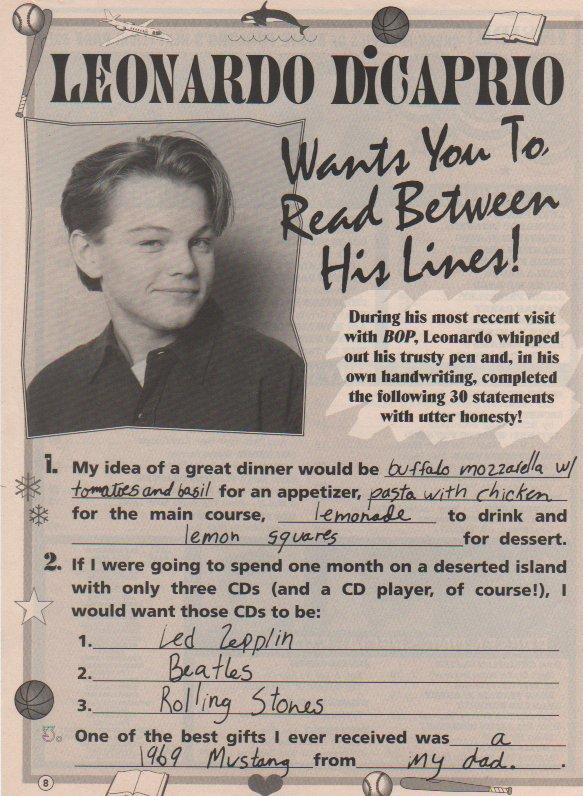 LEONARDO DiCAPRIO
Wants You To
Read Between
His Lines!
During his most recent visit
with BOP, Leonardo whipped
out his trusty pen and, in his
own handwriting, completed
the following 30 statements
with utter honesty!
1. My idea of a great dinner would be buffalo mozzarella w/
tomatoes and basil for an appetizer, pasta with chicken
for the main course, lemonade to drink and
lemon squares for dessert.
2. If I were going to spend one month on a deserted island
with only three CDs (and a CD player, of course!), I
would want those CDs to be:
1. Led Zepplin
2. Beatles
3. Rolling Stones
3. One of the best gifts I ever received was a
1969 Mustang from my dad.
8